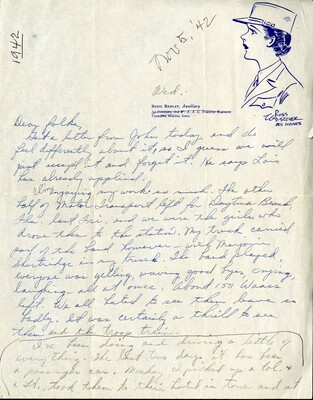 1942
Nov 5, '42
Wed:
Ross
Des Moines
Dear folks,
Got a letter from John today and do
feel differently about it, so I guess we will
just accept it and forget it. He says Lois
has already applied.
I'm enjoying my work so much. The other
half of Motor Transport left for Daytona Beach,
Fla. last Fri. and we were the girls who
drove them to the station. My truck carried
part of the band however - with Marjorie
in my truck. The band played,
everyone was yelling, waving good byes, crying,
laughing all at once. About 150 Waacs
left. We all hated to see them leave so
badly. It was certainly a thrill to see
them and the troop train.
I've been doing and driving a little of
everything. The last two days it has been
a passenger car. Monday I picked up a Col. &
a Lt., took them to their hotel in town and at